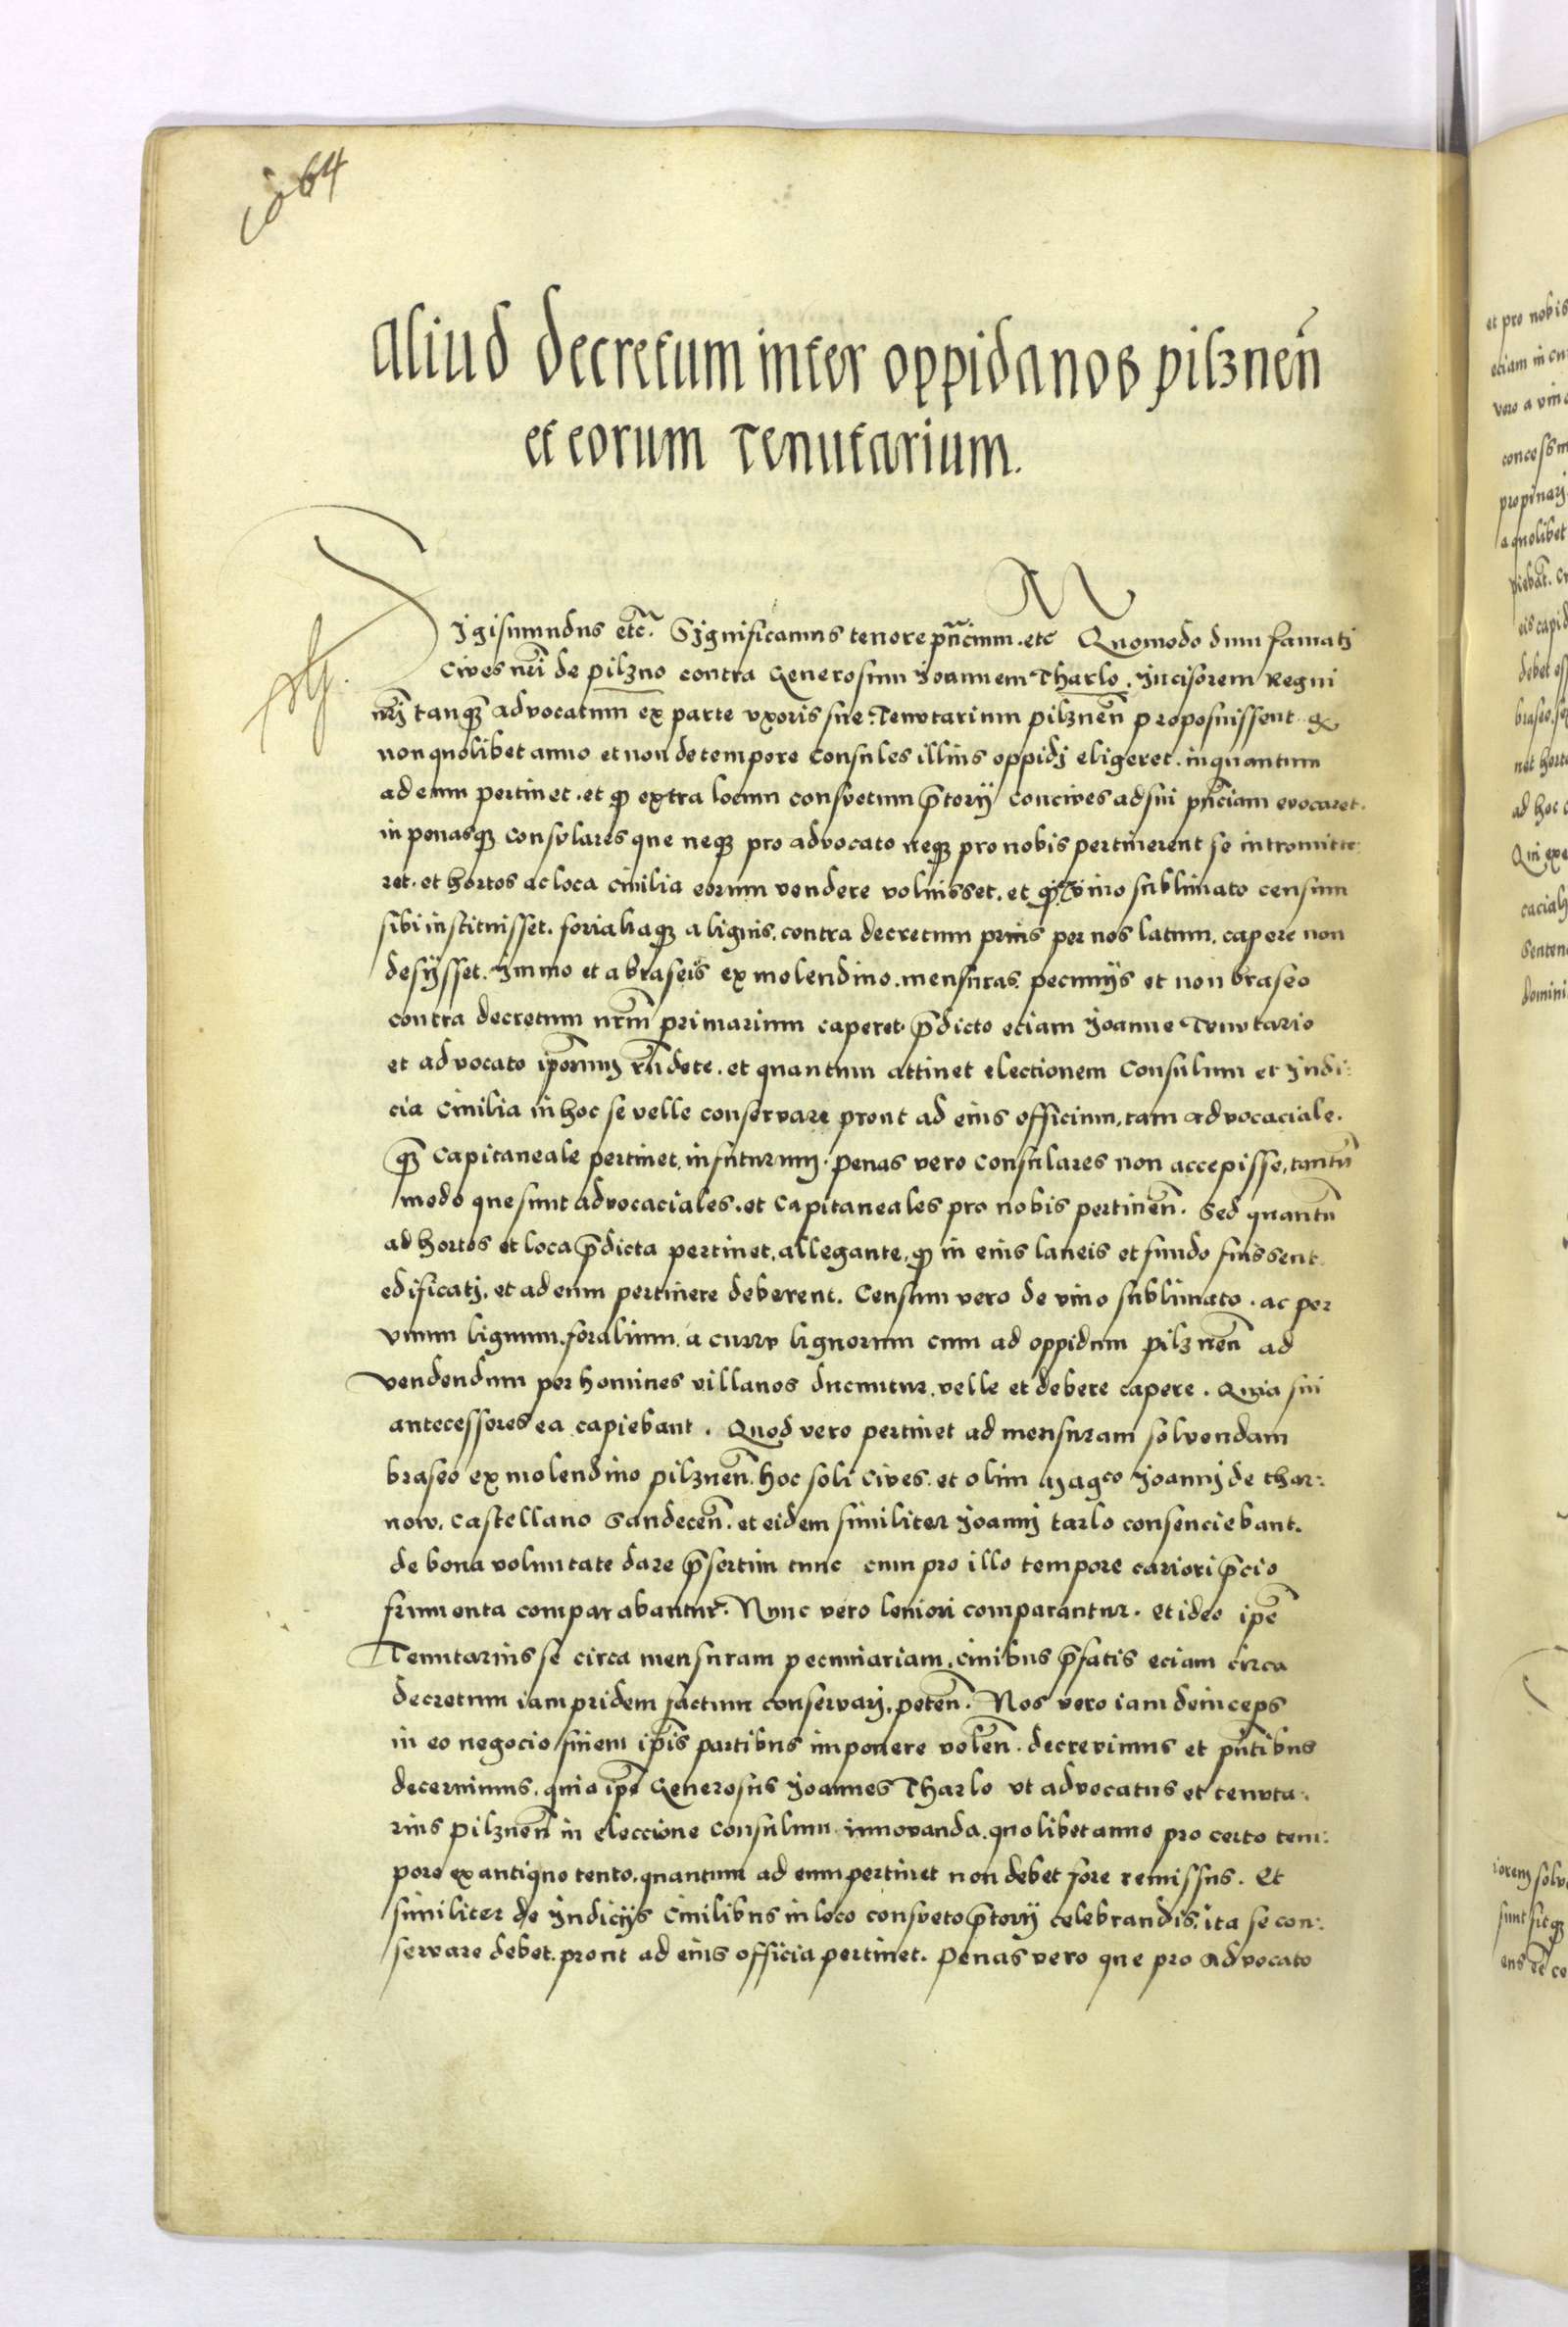 64
Aliud decretum inter oppidanos pilznen̄
et eorum Tenutarium.
Sigismundus etc̄. Significamus tenore pn̄cium. etc Quomodo dum famatj
Cives nr̄i de pilzno contra Generosum Joannem Tharlo. Jncisorem Regni
nr̄j tanqꝫ advocatum ex parte vxoris sue. Tenutarium pilznen̄ proposuissent. ꝙ
non quolibet anno et non de tempore Consules illius oppidj eligeret. inquantum
ad eum pertinet. et ꝙ extra locum consuetum p̄torij concives ad sui pn̄ciam evocaret.
in penasqꝫ consulares que neqꝫ pro advocato neqꝫ pro nobis pertinerent se intromitte
ret. et hortos ac loca civilia eorum vendere voluisset. et ꝙ vino sublimato censum
sibi instituisset. foraliaqꝫ a lignis. contra decretum prius per nos latum. capere non
desijsset. Jmmo et a braseis ex molendino. mensuras. pecunijs et non braseo
contra decretum nr̄m primarium caperet. p̄dicto eciam Joanne Tenutario
et advocato ip̄orum rn̄dete. et quantum attinet electionem Consulum et Judi:
cia Civilia in hoc se velle conservare prout ad eius officium, tam advocaciale.
qꝫ Capitaneale pertinet, in futurum. penas vero Consulares non accepisse, tantū
modo que sunt advocaciales. et Capitaneales pro nobis pertinen̄. Sed quantū
ad hortos et loca p̄dicta pertinet, allegante, ꝙ in eius laneis et fundo fuissent
edificatj. et ad eum pertinere deberent. Censum vero de vino sublimato. ac per
vnum lignum. foralium. a curru lignorum cum ad oppidum pilznen̄ ad
vendendum per homines villanos ducuntur. velle et debere capere. Quia sui
antecessores ea capiebant. Quod vero pertinet ad mensuram solvendam
braseo ex molendino pilznen̄. hoc soli Cives. et olim Magco Joannj de Thar:
now. Castellano Sandecen̄. et eidem similiter Joannj tarlo consenciebant.
de bona voluntate dare p̄sertim tunc cum pro illo tempore cariori p̄cio
frumenta comparabantur. Nunc vero leniori comparantur. et ideo ip̄e
Tenutarius se circa mensuram pecuniariam. civibus p̄fatis eciam circa
decretum iam pridem factum conservarj. peten̄. Nos vero iam deinceps
in eo negocio finem ip̄is partibus imponere volen̄. decrevimus et pn̄tibus
decernimus. quia ip̄e Generosus Joannes Tharlo vt advocatus et tenuta.
rius pilznen̄ in eleccione Consulum innovanda. quolibet anno pro certo tem:
pore ex antiquo tento. quantum ad eum pertinet non debet fore remissus. Et
similiter de Judicijs Civilibus in loco consueto p̄torij celebrandis. ita se con:
servare debet. prout ad eius officia pertinet. Penas vero que pro Advocato
et pro nobis
eciam in
vero a
propinarj
a quolibet
piebāt.
debet
ad hoc
Qui
dominj
sunt sit qꝫ